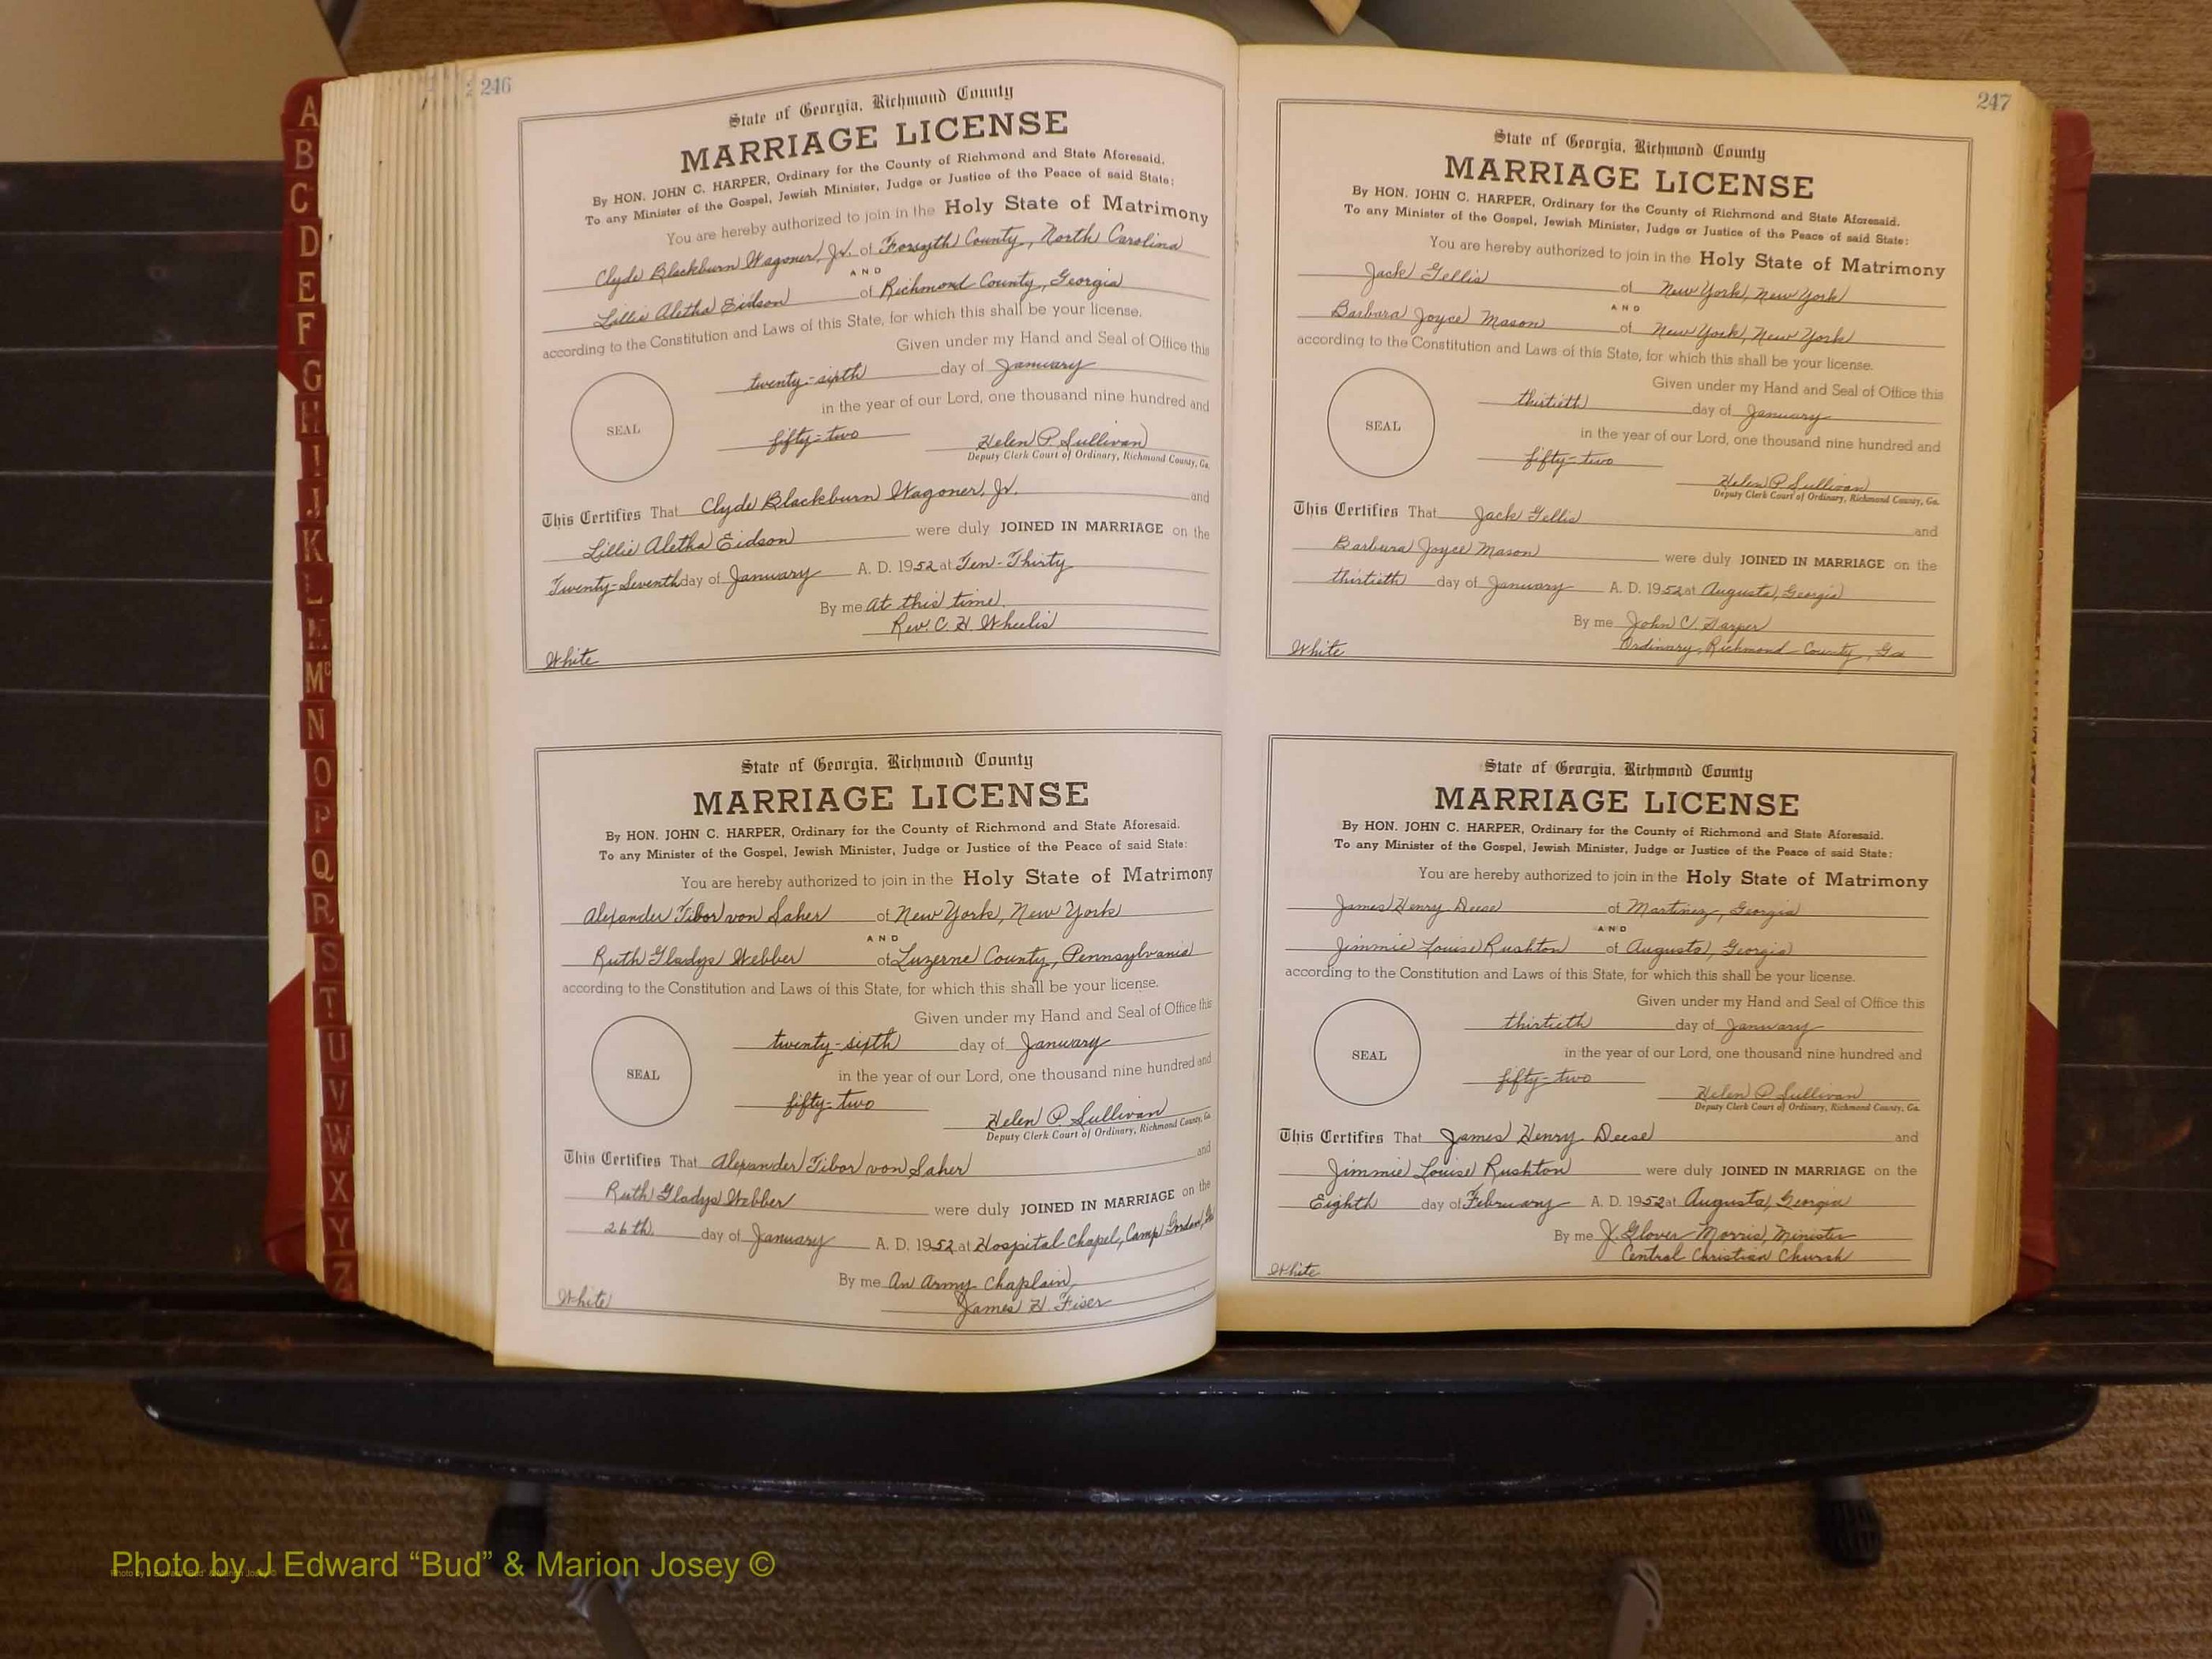 246
State of Georgia, Richmond County
MARRIAGE LICENSE
By HON. JOHN C. HARPER, Ordinary for the County of Richmond and State Aforesaid.
To any Minister of the Gospel, Jewish Minister, Judge or Justice of the Peace of said State:
You are hereby authorized to join in the Holy State of Matrimony
Clyde Blackburn Wagoner, Jr. of Forsyth County, North Carolina
AND
Lillie Aletha Eidson of Richmond County, Georgia
according to the Constitution and Laws of this State, for which this shall be your license.
Given under my Hand and Seal of Office this
twenty-sixth day of January
in the year of our Lord, one thousand nine hundred and
SEAL
fifty-two Helen P. Sullivan
Deputy Clerk Court of Ordinary, Richmond County, Ga.
This Certifies That Clyde Blackburn Wagoner, Jr. and
Lillie Aletha Eidson were duly JOINED IN MARRIAGE on the
Twenty-Seventh day of January A. D. 1952 at Ten-Thirty
By me at this time.
Rev. C. H. Wheelis
White
State of Georgia, Richmond County
MARRIAGE LICENSE
By HON. JOHN C. HARPER, Ordinary for the County of Richmond and State Aforesaid.
To any Minister of the Gospel, Jewish Minister, Judge or Justice of the Peace of said State:
You are hereby authorized to join in the Holy State of Matrimony
Alexander Tibor von Saher of New York, New York
AND
Ruth Gladys Webber of Luzerne County, Pennsylvania
according to the Constitution and Laws of this State, for which this shall be your license.
Given under my Hand and Seal of Office this
twenty-sixth day of January
in the year of our Lord, one thousand nine hundred and
SEAL
fifty-two Helen P. Sullivan
Deputy Clerk Court of Ordinary, Richmond County, Ga.
This Certifies That Alexander Tibor von Saher and
Ruth Gladys Webber were duly JOINED IN MARRIAGE on the
26th. day of January A. D. 1952 at Hospital Chapel, Camp Gordon, Ga
By me An Army Chaplain
James H Fiser
White
247
State of Georgia, Richmond County
MARRIAGE LICENSE
By HON. JOHN C. HARPER, Ordinary for the County of Richmond and State Aforesaid.
To any Minister of the Gospel, Jewish Minister, Judge or Justice of the Peace of said State:
You are hereby authorized to join in the Holy State of Matrimony
Jack Gellis of New York, New York
AND
Barbara Joyce Mason of New York, New York
according to the Constitution and Laws of this State, for which this shall be your license.
Given under my Hand and Seal of Office this
thirtieth day of January
in the year of our Lord, one thousand nine hundred and
SEAL
fifty-two Helen P. Sullivan
Deputy Clerk Court of Ordinary, Richmond County, Ga.
This Certifies That Jack Gellis and
Barbara Joyce Mason were duly JOINED IN MARRIAGE on the
thirtieth day of January A. D. 1952 at Augusta, Georgia
By me John C. Harper
Ordinary, Richmond County, Ga
White
State of Georgia, Richmond County
MARRIAGE LICENSE
By HON. JOHN C. HARPER, Ordinary for the County of Richmond and State Aforesaid.
To any Minister of the Gospel, Jewish Minister, Judge or Justice of the Peace of said State:
You are hereby authorized to join in the Holy State of Matrimony
James Henry Deese of Martinez, Georgia
AND
Jimmie Louise Rushton of Augusta, Georgia
according to the Constitution and Laws of this State, for which this shall be your license.
Given under my Hand and Seal of Office this
thirtieth day of January
in the year of our Lord, one thousand nine hundred and
SEAL
fifty-two Helen P. Sullivan
Deputy Clerk Court of Ordinary, Richmond County, Ga.
This Certifies That James Henry Deese and
Jimmie Louise Rushton were duly JOINED IN MARRIAGE on the
Eighth day of February A. D. 1952 at Augusta, Georgia
By me J. Glover Morris, Minister
Central Christian Church
White
A
B
C
D
E
F
G
H
I
J
K
L
M
Mc
N
O
P
Q
R
S
T
U
V
W
X
Y
Z
Photo by J Edward "Bud" & Marion Josey ©
Photo by J Edward "Bud" & Marion Josey ©